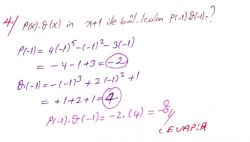 4/ P(x).Q(x) in x+1 ile böl. kalan P(-1)Q(-1)=?
P(-1)=4(-1)⁵-(-1)²-3(-1)
= -4-1+3=-2
Q(-1)=-(-1)³+2(-1)²+1
= +1+2+1=4
P(-1).Q(-1)=-2.(4)=-8
CEVAP:A